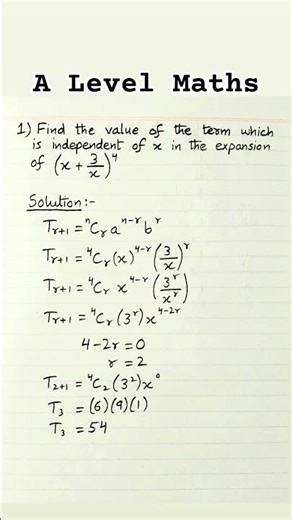 A Level Maths
1) Find the value of the term which
is independent of x in the expansion
of (x + 3/x)⁴
Solution:-
Tᵣ₊₁ = ⁿCᵣ aⁿ⁻ʳ bʳ
Tᵣ₊₁ = ⁴Cᵣ (x)⁴⁻ʳ (3/x)ʳ
Tᵣ₊₁ = ⁴Cᵣ x⁴⁻ʳ (3ʳ/xʳ)
Tᵣ₊₁ = ⁴Cᵣ (3ʳ) x⁴⁻²ʳ
4-2r = 0
r = 2
T₂₊₁ = ⁴C₂ (3²) x⁰
T₃ = (6)(9)(1)
T₃ = 54